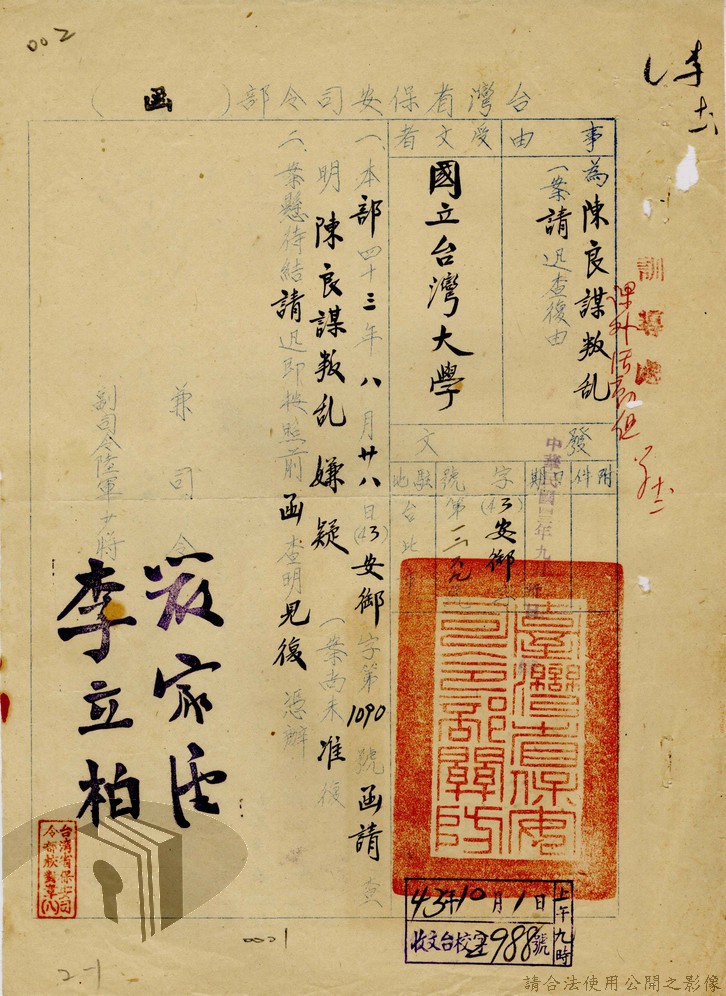 002
李
台灣省保安司令部(函)
事由
為陳良謀叛乱
一案請迅查復由
受文者
國立台灣大學
發文
附件
日期
中華民國四三年九月
字號
(43)安御
第
駐地
台北市
一、本部四十三年八月廿八日(43)安御字第1090號函請查
明陳良謀叛乱嫌疑一案尚未准復
二、案懸待結請迅即按照前函查明見復憑辦
兼司令
嚴家淦
副司令陸軍少將
李立柏
訓導處
課外活動組
臺灣省保安司令部關防
台灣省保安司令部校對章(八)
43年10月1日
上午九時
收文台校字988號
0001
2-1
請合法使用公開之影像